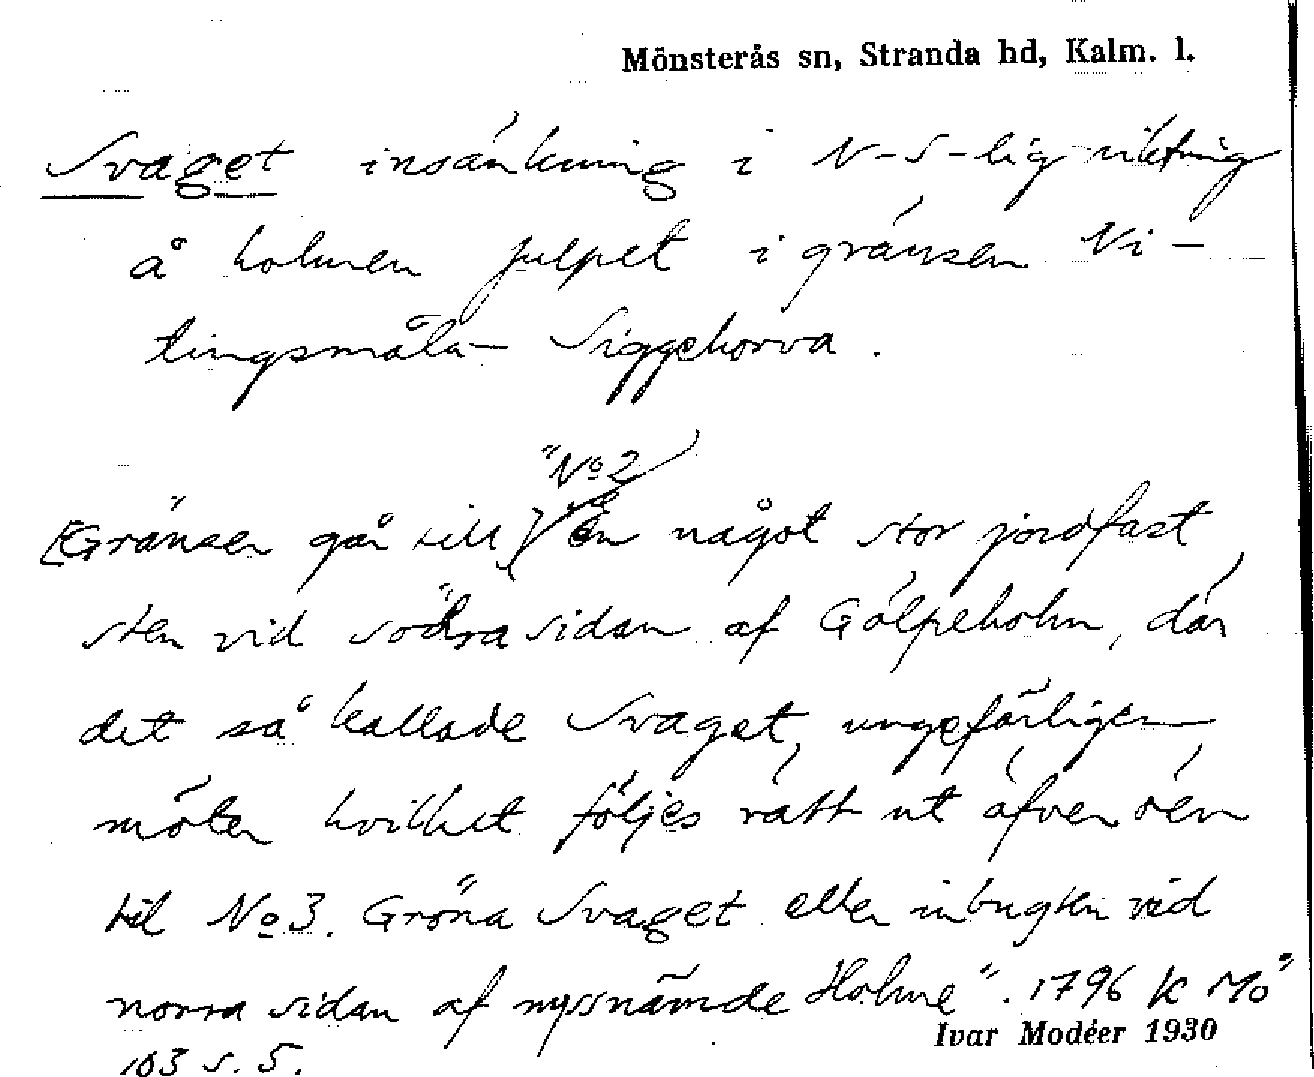 Mönsterås sn, Stranda hd, Kalm. l.
Svaget insänkning i N-S-lig riktning
å holmen Julpet i gränsen Vi-
tingsmåla- Siggehorva.
"No 2
[Gränsen går till] En något stor jordfast
sten vid södra sidan af Gölpeholm, där
det så kallade Svaget, ungefärligen
möter hvilket följes rätt ut öfver ön
til No 3. Gröna Svaget eller inbugten vid
norra sidan af nyssnämde Holme". 1796 K Mö
103 s. 5.
Ivar Modéer 1930